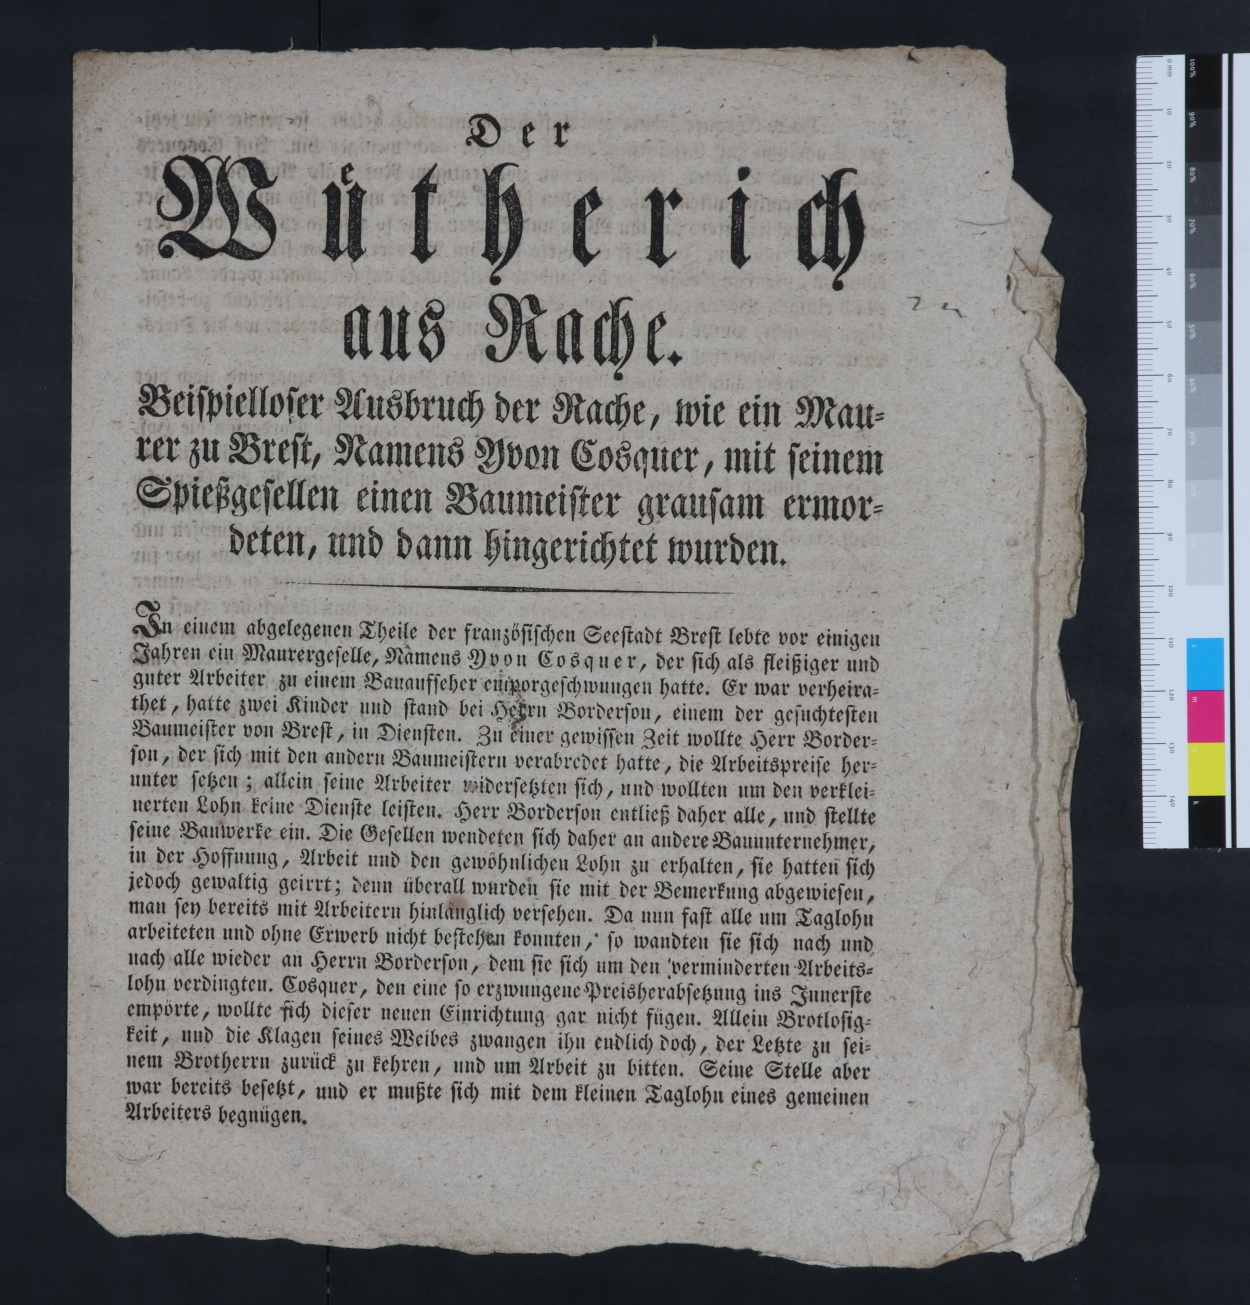 Der
Wuͤtherich
aus Rache.
Beispielloser Ausbruch der Rache, wie ein Mau-
rer zu Brest, Namens Yvon Cosquer, mit seinem
Spießgesellen einen Baumeister grausam ermor-
deten, und dann hingerichtet wurden.
In einem abgelegenen Theile der französischen Seestadt Brest lebte vor einigen
Jahren ein Maurergeselle, Namens Yvon Cosquer, der sich als fleißiger und
guter Arbeiter zu einem Bauaufseher emporgeschwungen hatte. Er war verheira-
thet, hatte zwei Kinder und stand bei Herrn Borderson, einem der gesuchtesten
Baumeister von Brest, in Diensten. Zu einer gewissen Zeit wollte Herr Border-
son, der sich mit den andern Baumeistern verabredet hatte, die Arbeitspreise her-
unter setzen; allein seine Arbeiter widersetzten sich, und wollten um den verklei-
nerten Lohn keine Dienste leisten. Herr Borderson entließ daher alle, und stellte
seine Bauwerke ein. Die Gesellen wendeten sich daher an andere Bauunternehmer,
in der Hoffnung, Arbeit und den gewöhnlichen Lohn zu erhalten, sie hatten sich
jedoch gewaltig geirrt; denn überall wurden sie mit der Bemerkung abgewiesen,
man sey bereits mit Arbeitern hinlänglich versehen. Da nun fast alle um Taglohn
arbeiteten und ohne Erwerb nicht bestehen konnten, so wandten sie sich nach und
nach alle wieder an Herrn Borderson, dem sie sich um den verminderten Arbeits-
lohn verdingten. Cosquer, den eine so erzwungene Preisherabsetzung ins Innerste
empörte, wollte sich dieser neuen Einrichtung gar nicht fügen. Allein Brotlosig-
keit, und die Klagen seines Weibes zwangen ihn endlich doch, der Letzte zu sei-
nem Brotherrn zurück zu kehren, und um Arbeit zu bitten. Seine Stelle aber
war bereits besetzt, und er mußte sich mit dem kleinen Taglohn eines gemeinen
Arbeiters begnügen.